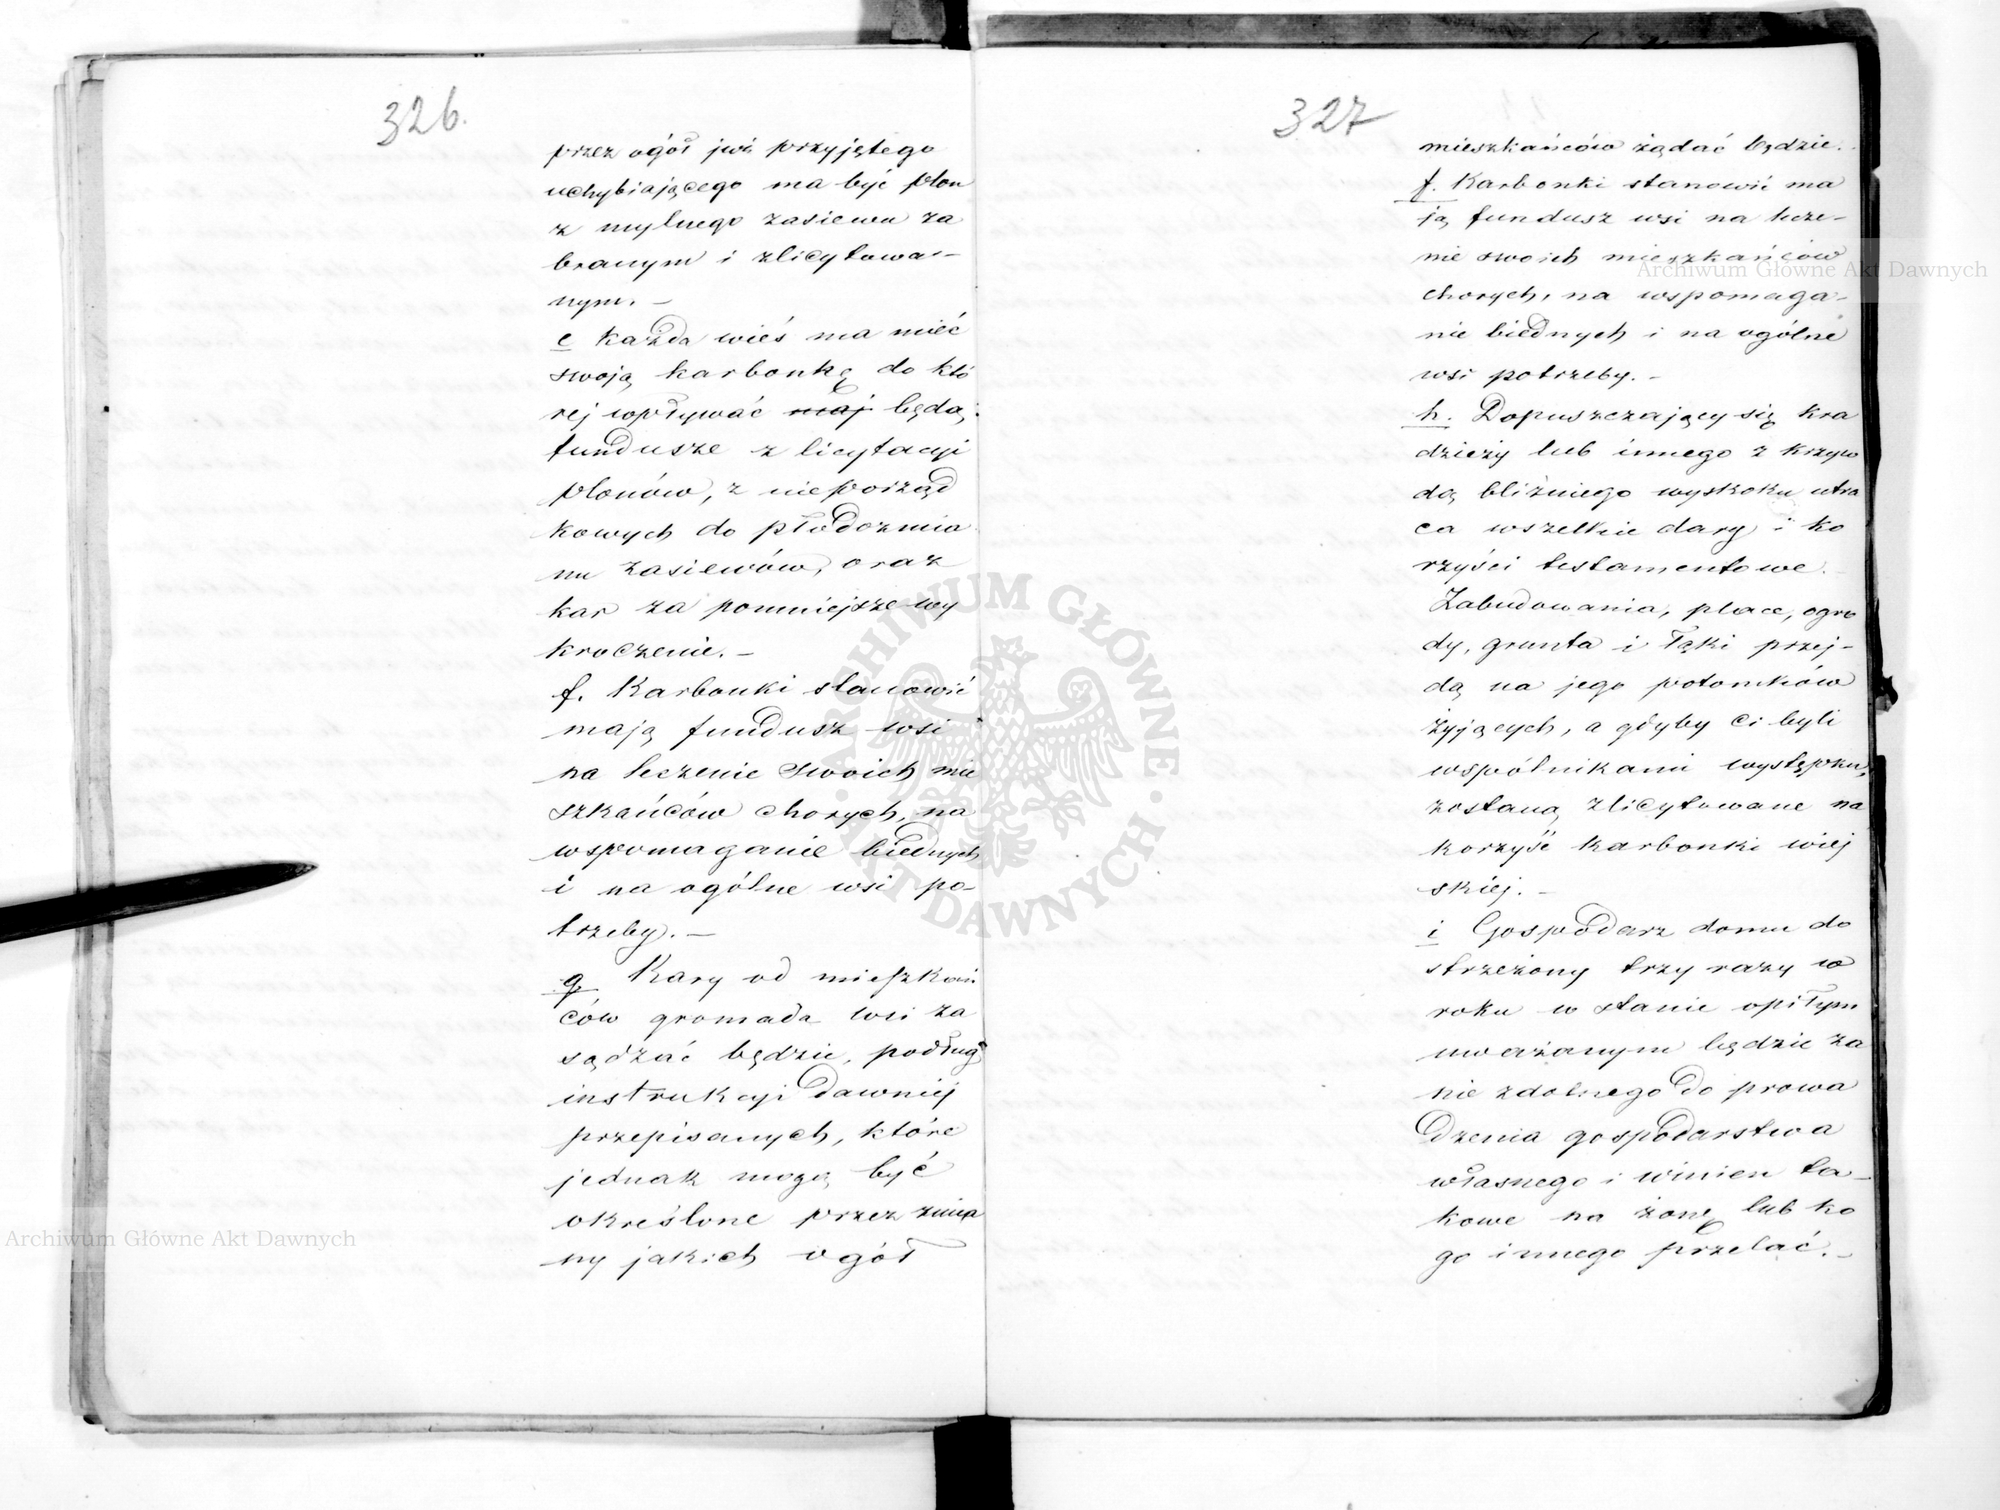 326.
przez ogół już przyjętego
uchybiającego ma być plon
z mylnego zasiewu za
branym i zlicytowa-
nym. -
e Każda wieś ma mieć
swoją karbonkę do któ
rej wpływać maj będą
fundusze z licytacyi
plonów, z nieporząd
kowych do płodozmia
nu zasiewów, oraz
kar za pomniejsze wy
kroczenie. -
f. Karbonki stanowić
mają fundusz wsi
na leczenie swoich mie
szkańców chorych, na
wspomaganie biednych
i na ogólne wsi po-
trzeby. -
g. Kary od mieszkań
ców gromada wsi za
sądzać będzie, podług
instrukcyi dawniej
przepisanych, które
jednak mogą być
określone przez zmia
ny jakich ogół
327
mieszkańców żądać będzie.
f. Karbonki stanowić ma
ją fundusz wsi na lecze-
nie swoich mieszkańców
chorych, na wspomaga-
nie biednych i na ogólne
wsi potrzeby. -
h. Dopuszczający się kra
dzieży lub innego z krzyw
dą bliźniego wyskoku utra
ca wszelkie dary i ko
rzyści testamentowe.
Zabudowania, place, ogro
dy, grunta i łąki przej-
dą na jego potomków
żyjących, a gdyby ci byli
wspólnikami występku,
zostaną zlicytowane na
korzyść karbonki wiej
skiej. -
i Gospodarz domu do
strzeżony trzy razy w
roku w stanie opiłym
uważanym będzie za
nie zdolnego do prowa
dzenia gospodarstwa
własnego i winien ta-
kowe na żonę lub ko
go innego przelać. -
Archiwum Główne Akt Dawnych
Archiwum Główne Akt Dawnych
ARCHIWUM GŁÓWNE · AKT DAWNYCH ·